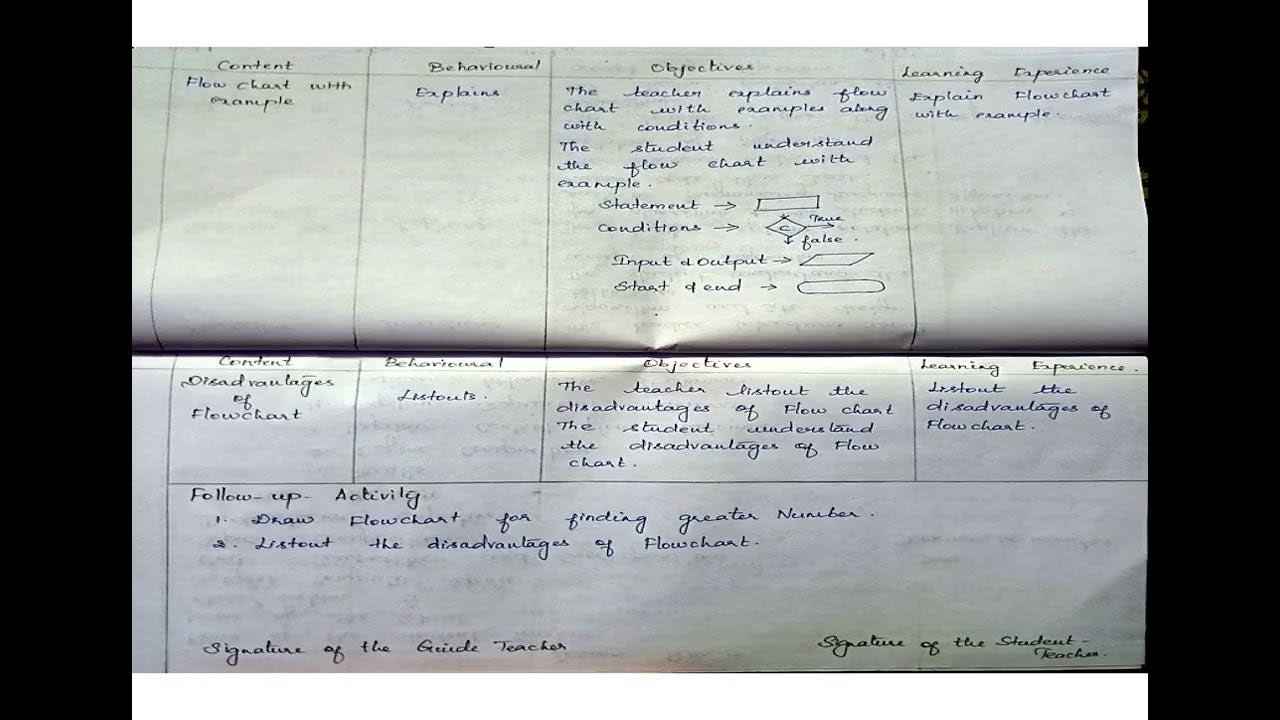 Content Behavioural Objectives Learning Experience
Flow chart with
example
Explains
The teacher explains flow
chart with examples along
with conditions.
The student understand
the flow chart with
example.
Statement →
Conditions → C True
false.
Input & Output →
Start & end →
Explain Flowchart
with example.
Content Behavioural Objectives Learning Experience.
Disadvantages
of
Flowchart
Listouts.
The teacher listout the
disadvantages of Flow chart
The student understand
the disadvantages of Flow
chart.
Listout the
disadvantages of
Flowchart.
Follow-up- Activity
1. Draw Flowchart for finding greater Number.
2. Listout the disadvantages of Flowchart.
Signature of the Guide Teacher
Signature of the Student-
Teacher.